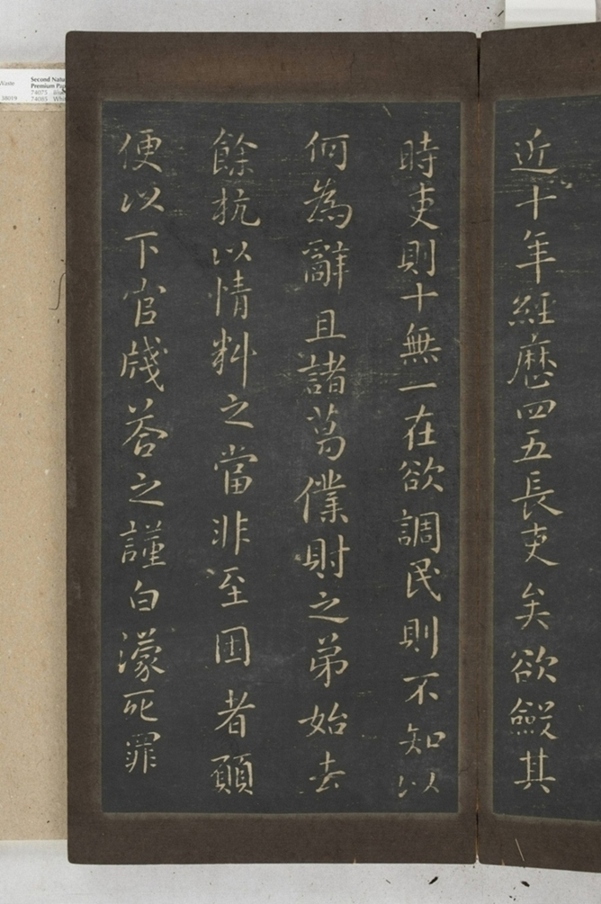 近十年經歷四五長吏矣欲斂其
時吏則十無一在欲調民則不知以
何為辭且諸葛僕財之弟始去
餘杭以情料之當非至困者願
便以下官牋荅之謹白濛死罪
Second Natu
Premium Pap
74075
74085 Whi
38019